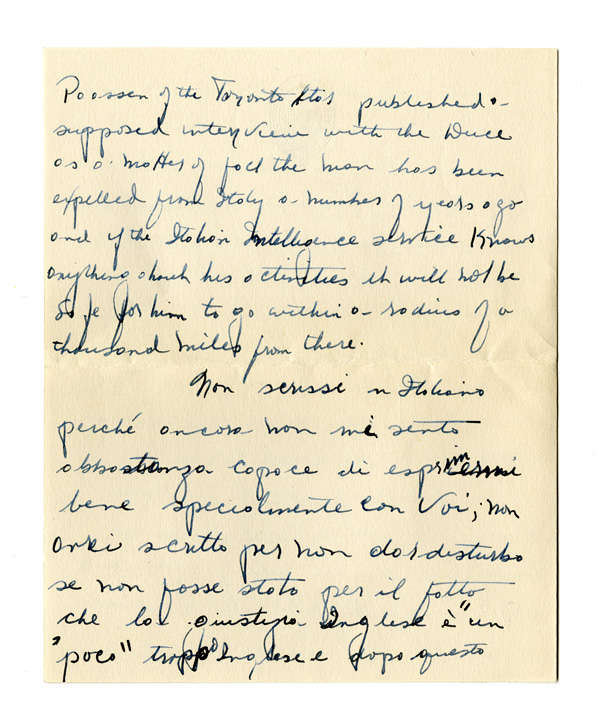 Paassen of the Toronto Star published a
supposed interview with the Duce
as a matter of fact the man has been
expelled from Italy a number of years ago
and if the Italian Intelligence service Knows
anything about his activities it will not be
safe for him to go within a radius of a
thousand miles from there.
Non scrissi in Italiano
perché ancora non mi sento
abbastanza capace di esprimermi
bene specialmente con Voi; non
avrei scritto per non dar disturbo
se non fosse stato per il fatto
che la giustizia Inglese è "un
poco" troppo Inglese e dopo questo